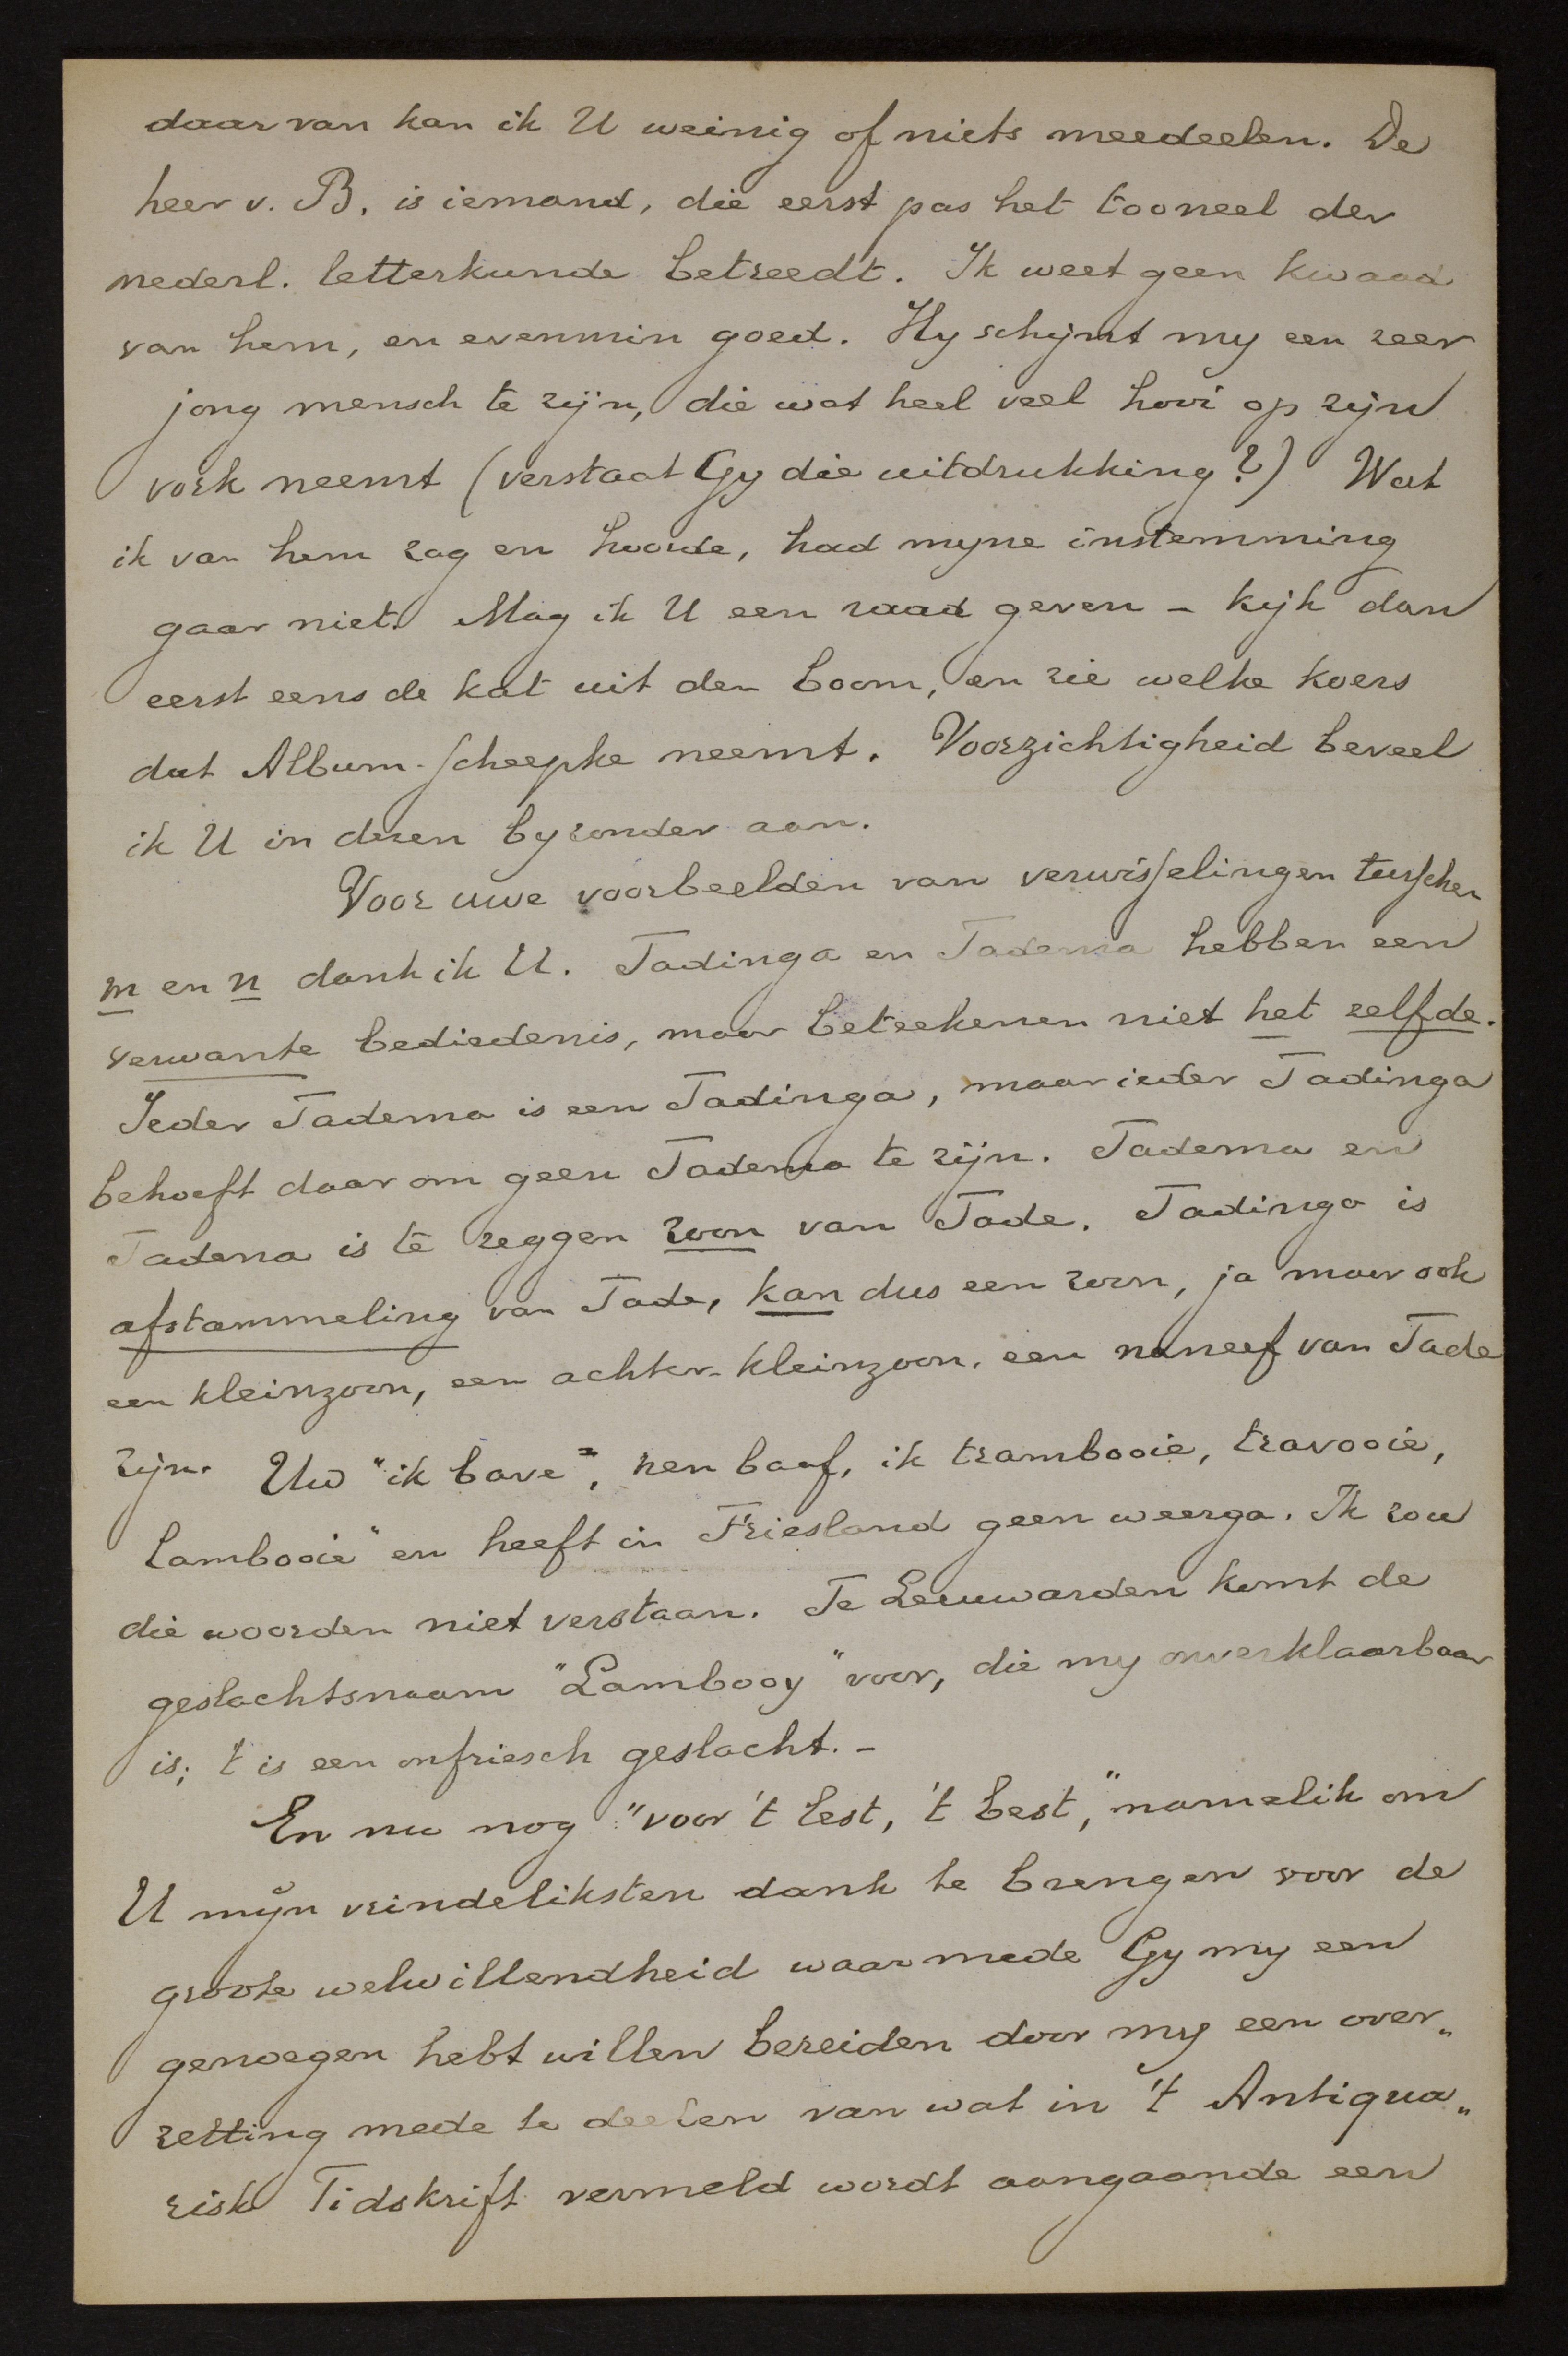 daarvan kan ik U weinig of niets meedeelen. De
heer v. B. is iemand, die eerst pas het tooneel der
nederl. letterkunde betreedt. Ik weet geen kwaad
van hem, en evenmin goed. Hy schijnt my een zeer
jong mensch te zijn, die wat heel veel hooi op zijn
vork neemt (verstaat Gy die uitdrukking?) Wat
ik van hem zag en hoorde, had myne instemming
gaar niet. Mag ik U een raad geven – kijk dan
eerst eens de kat uit den boom, en zie welke koers
dat Album-scheepke neemt. Voorzichtigheid beveel
ik U in dezen byzonder aan.
Voor uwe voorbeelden van verwisselingen tusschen
m en n dank ik U. Tadinga en Tadema hebben een
verwante bediedenis, maar beteekenen niet het zelfde.
Ieder Tadema is een Tadinga, maar ieder Tadinga
behoeft daarom geen Tadema te zijn. Tadema en
Tadena is te zeggen zoon van Tade. Tadinga is
afstammeling van Tade, kan dus een zoon, ja maar ook
een kleinzoon, een achter-kleinzoon, een naneef van Tade
zijn. Uw "ik bave", nen baaf, ik trambooie, travooie,
lambooie" en heeft in Friesland geen weerga. Ik zou
die woorden niet verstaan. Te Leeuwarden komt de
geslachtsnaam "Lambooy" voor, die my onverklaarbaar
is; 't is een onfriesch geslacht. –
En nu nog "voor 't lest, 't best," namelik om
U mijn vrindeliksten dank te brengen voor de
groote welwillendheid waarmede Gy my een
genoegen hebt willen bereiden door my een over„
zetting mede te deelen van wat in 't Antiqua„
risk Tidskrift vermeld wordt aangaande een